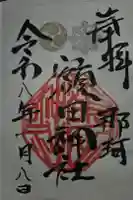 奉拝 那珂
額田神社
令和八年 月八日